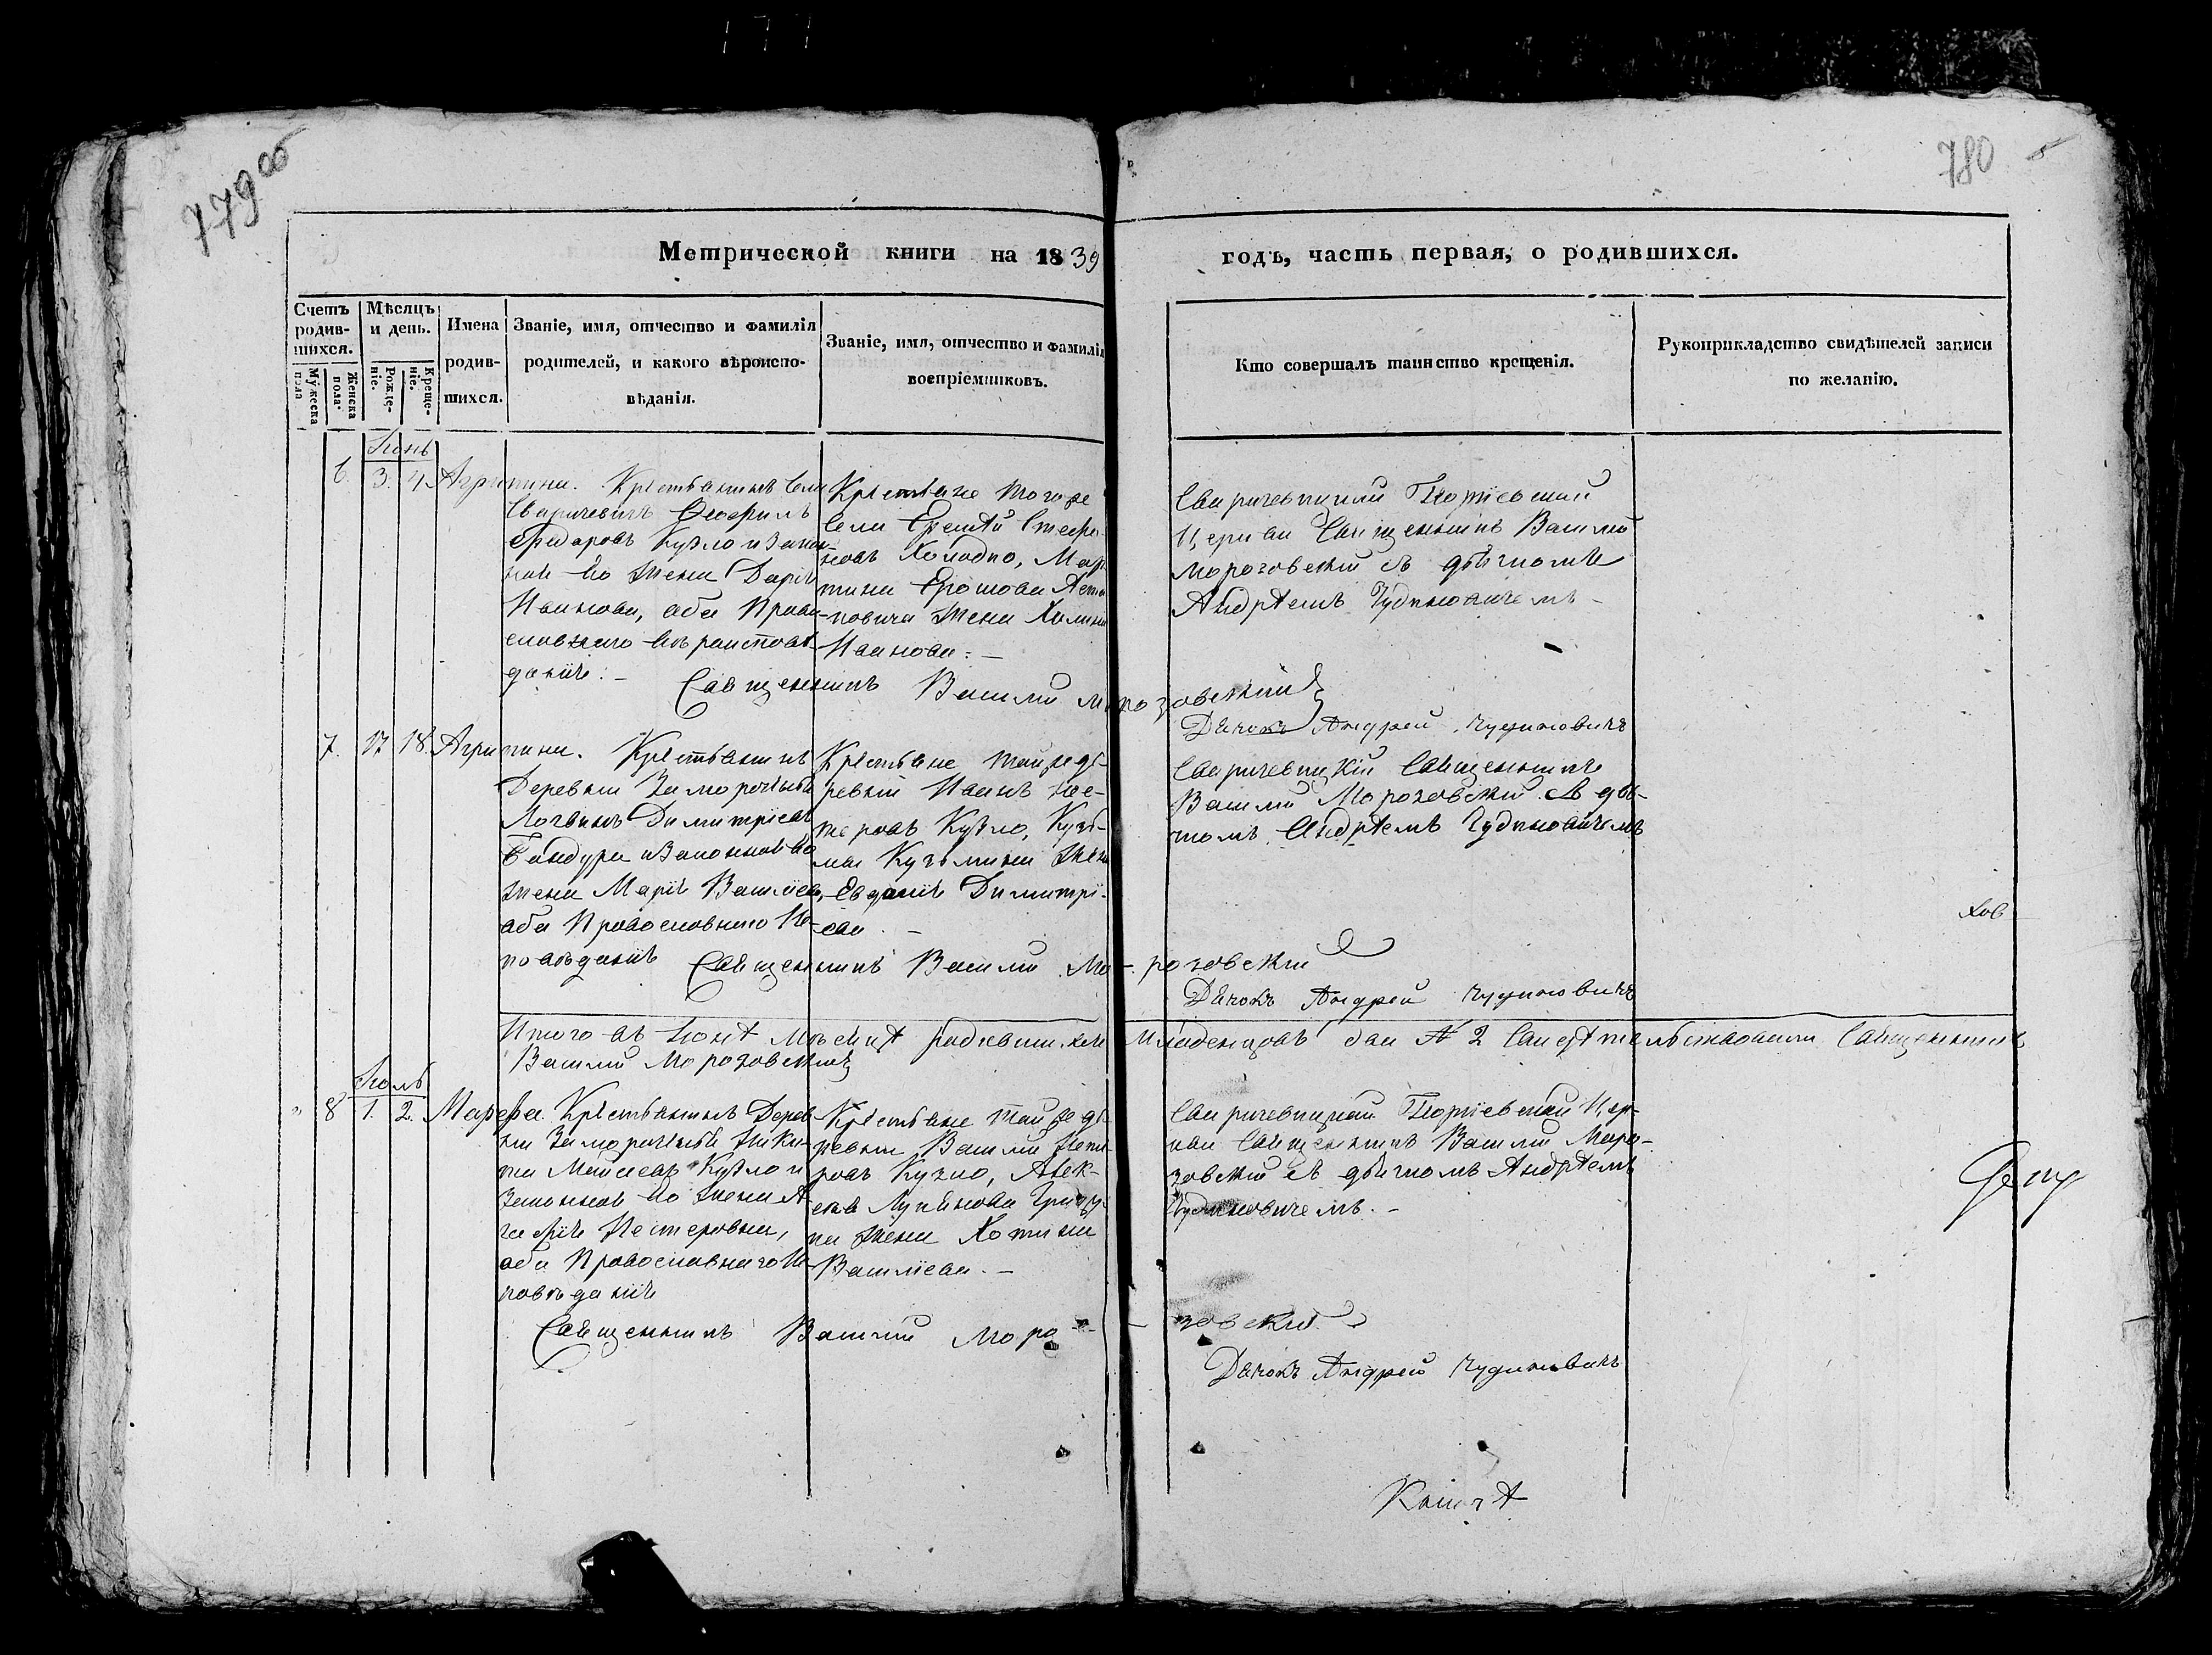 779 об
780
Метрической книги на 1839
годъ, часть первая, о родившихся.
Счетъ родив-шихся.
Мужеска пола
Женска пола
Мѣсяцъ и день.
Рожде-ніе.
Креще-ніе.
Имена родив-шихся.
Званіе, имя, отчество и фамилія
родителей, и какого вѣроиспо-
вѣданія.
Званіе, имя, отчество и фамилія
воспріемниковъ.
Кто совершалъ таинство крещенія.
Рукоприкладство свидѣтелей записи
по желанію.
Іюнь
6. 3. 4. Агрипина.
Крестьянинъ села
Сваричевичъ Ѳеофилъ
Кузло и закон-
ной его жены Даріи
Иванова, оба Право-
славнаго вѣроисповѣ-
даніе: –
Крестьяне тогоже
села Стефа-
новъ Холодко, Мар-
тина
повича жена
Иванова: –
Сваричевицкой Георгіевской
Церкви Священникъ Василій
Морозовскій съ дьячкомъ
Андрѣемъ Чудиновичемъ –
Священникъ Василій Морозовскій
Дячокъ Андрей Чудиновичъ
7. 17 18. Агрипина.
Крестьянинъ
Деревни Заморочънья
Логвинъ Димитріевъ
Бандура и Законной его
жены Маріи Василіева,
оба Православнаго Ис-
повѣданіе
Крестьяне тойже де-
ревни Иванъ Нес-
теровъ Кузло, Кузь-
мы Кузьмина жена
Евдокія Димитрі-
ева. –
Сваричевицкій Священникъ
Василій Морозовскій съ дья-
комъ Андрѣемъ Чудиновичемъ
Священникъ Василій Мо-розовскій
Дячокъ Андрей Чудиновичъ
ков
Итого въ Іюнѣ Мѣсяцѣ родившихся Младенцовъ два № 2 Свидѣтельствовали Священникъ
Василій Морозовскій
Іюль
8 1. 2. Марѳа.
Крестьянинъ Дерев-
ни Заморочънья Ники-
та Моисеевъ Кузло и
Законной его жены А-
гафіи Нестеровны,
оба Православнаго Ис-
повѣданіе
Крестьяне тойже де-
ревни Василій Несте-
ровъ Кузло, Алек-
сѣя Лукянова
жена
Василіева. –
Сваричевицкой Георгіевской Цер-
кви Священникъ Василій Моро-
зовскій съ дьячкомъ Андрѣемъ
Чудиновичемъ. –
Священникъ Василій Моро-зовскій
Дячокъ Андрей Чудиновичъ